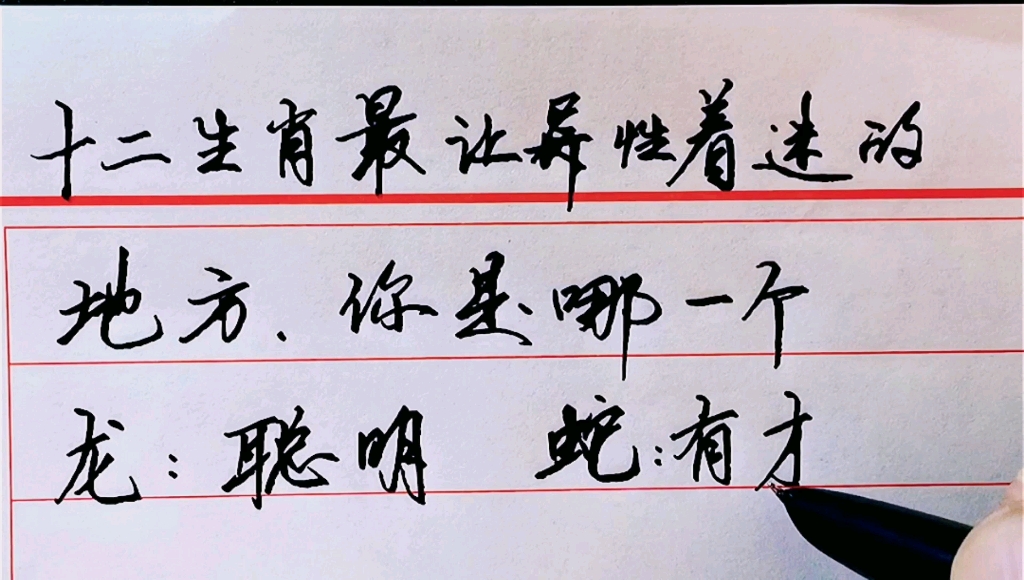 十二生肖最让异性着迷的
地方.你是哪一个
龙:聪明 蛇:有才